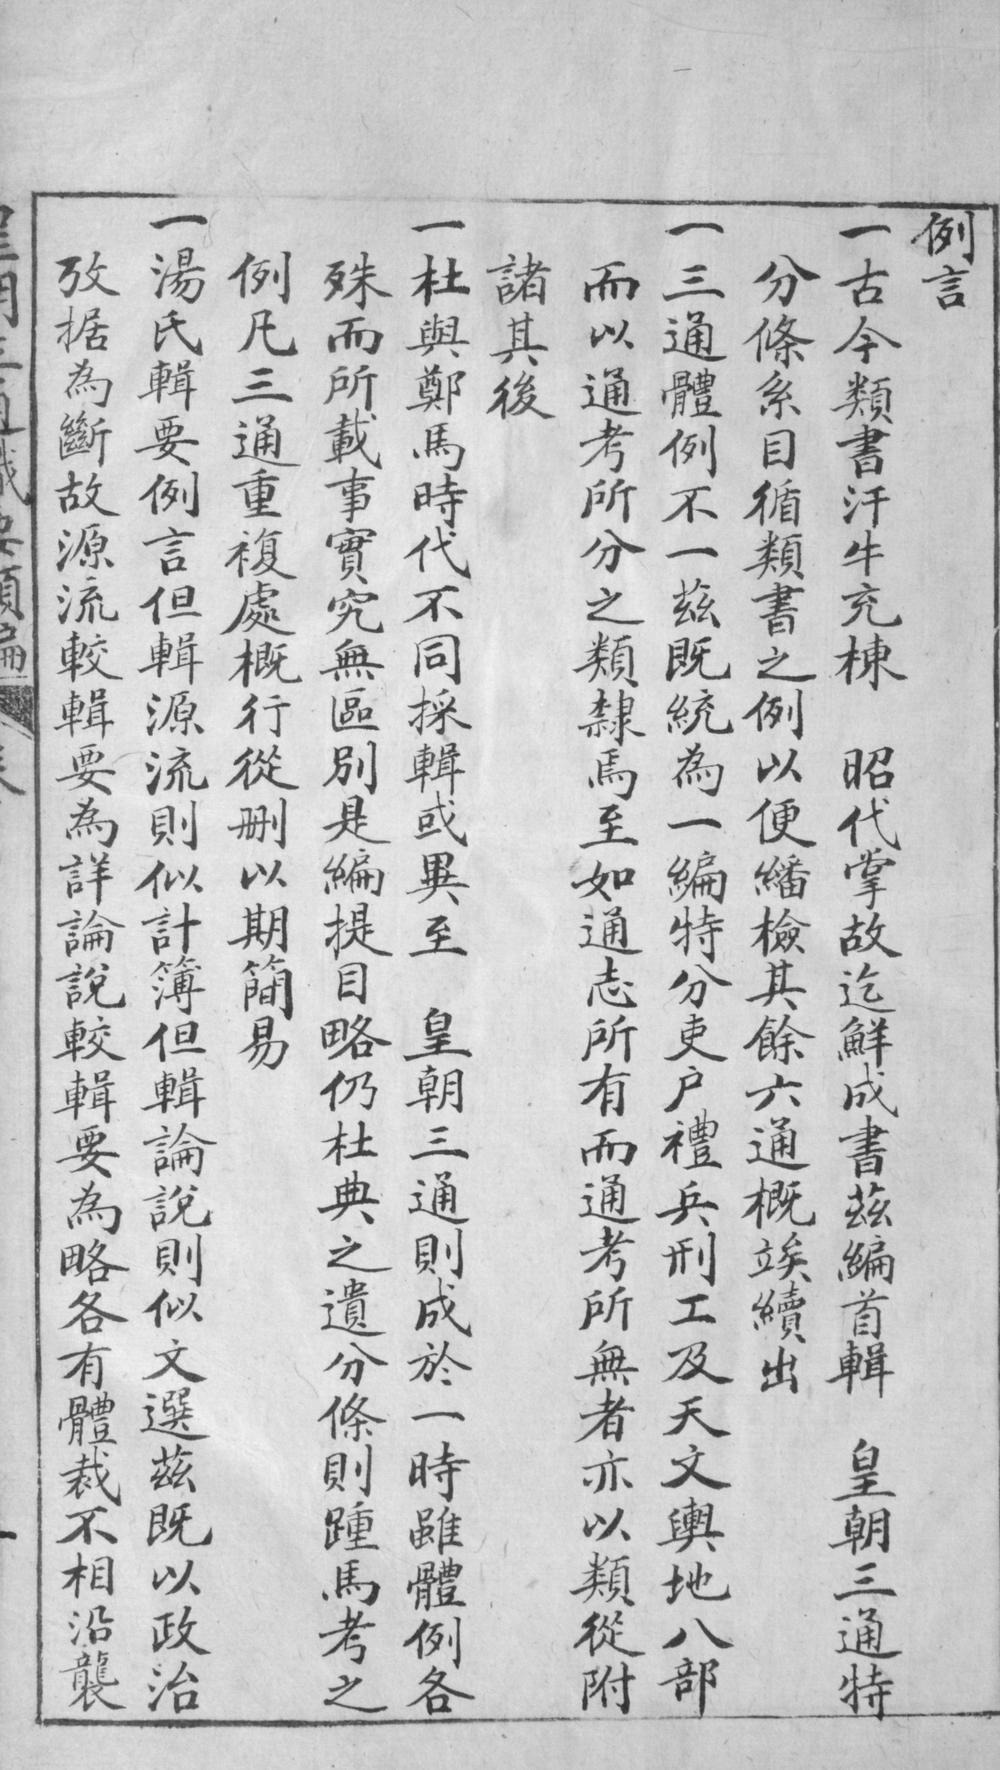 例言
一古今類書汗牛充棟　昭代掌故迄鮮成書茲編首輯　皇朝三通特
分條系目循類書之例以便繙檢其餘六通概竢續出
一三通體例不一茲既統為一編特分吏户禮兵刑工及天文輿地八部
而以通考所分之類隸焉至如通志所有而通考所無者亦以類從附
諸其後
一杜與鄭馬時代不同採輯或異至　皇朝三通則成於一時雖體例各
殊而所載事實究無區別是編提目略仍杜典之遺分條則踵馬考之
例凡三通重複處概行從刪以期簡易
一湯氏輯要例言但輯源流則似計簿但輯論說則似文選茲既以政治
攷据為斷故源流較輯要為詳論說較輯要為略各有體裁不相沿襲